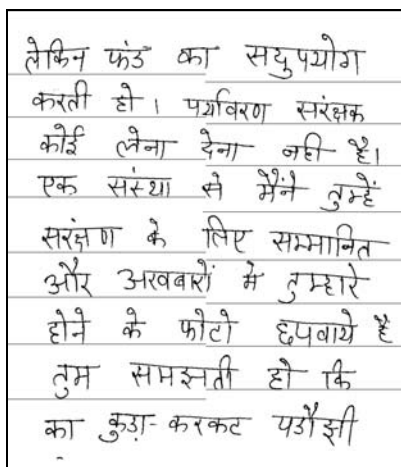 लेकिन फंड का सयुपयोग
करती हो। पर्यावरण सरंक्षक
कोई लेना देना नही है।
एक संस्था से मैंने तुम्हें
सरंक्षण के लिए सम्मानित
और अखबारों मे तुम्हारे
होने के फोटो छपवाये है
तुम समझती हो कि
का कुड़ा-करकट पडौझी